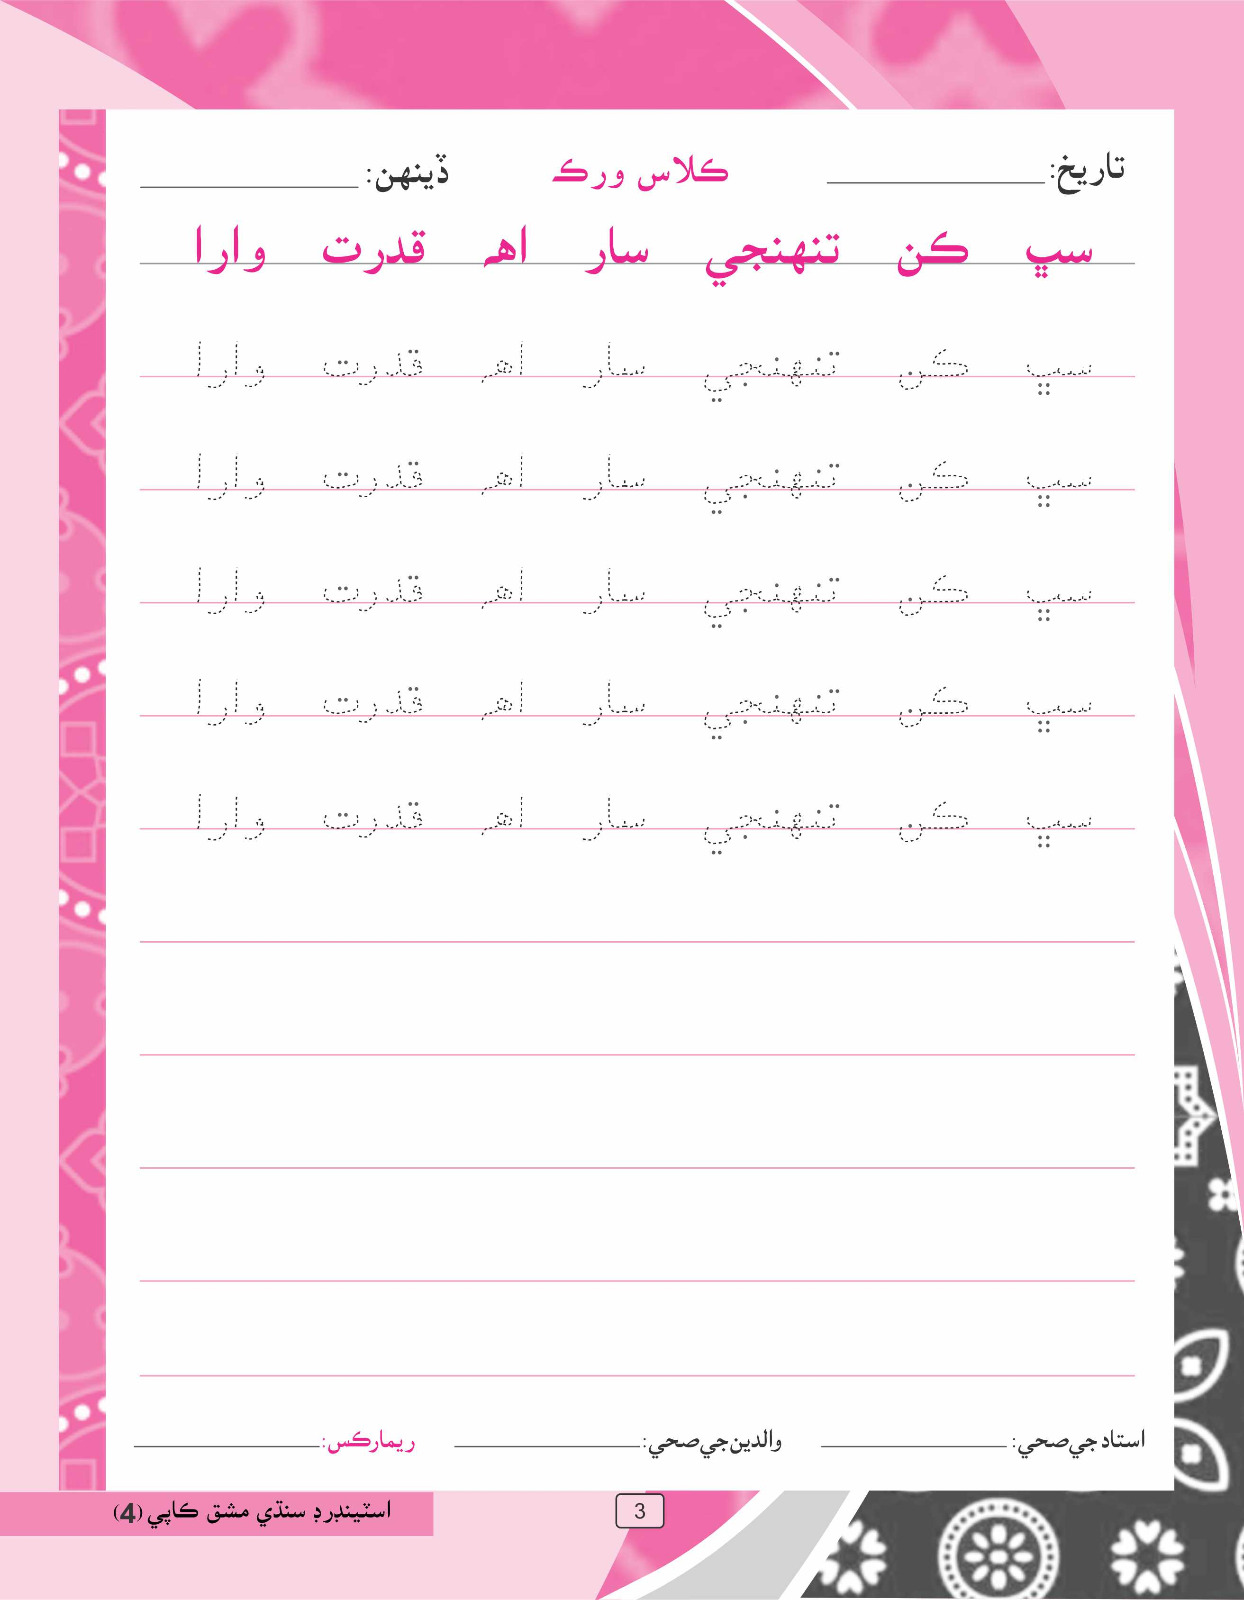 تاريخ: ڪلاس ورڪ ڏينهن:
سڀ ڪن تنهنجي سار اهہ قدرت وارا
سڀ ڪن تنهنجي سار اهہ قدرت وارا
سڀ ڪن تنهنجي سار اهہ قدرت وارا
سڀ ڪن تنهنجي سار اهہ قدرت وارا
سڀ ڪن تنهنجي سار اهہ قدرت وارا
سڀ ڪن تنهنجي سار اهہ قدرت وارا
استاد جي صحي: والدين جي صحي: ريمارڪس:
3
اسٽينڊرڊ سنڌي مشق ڪاپي (4)